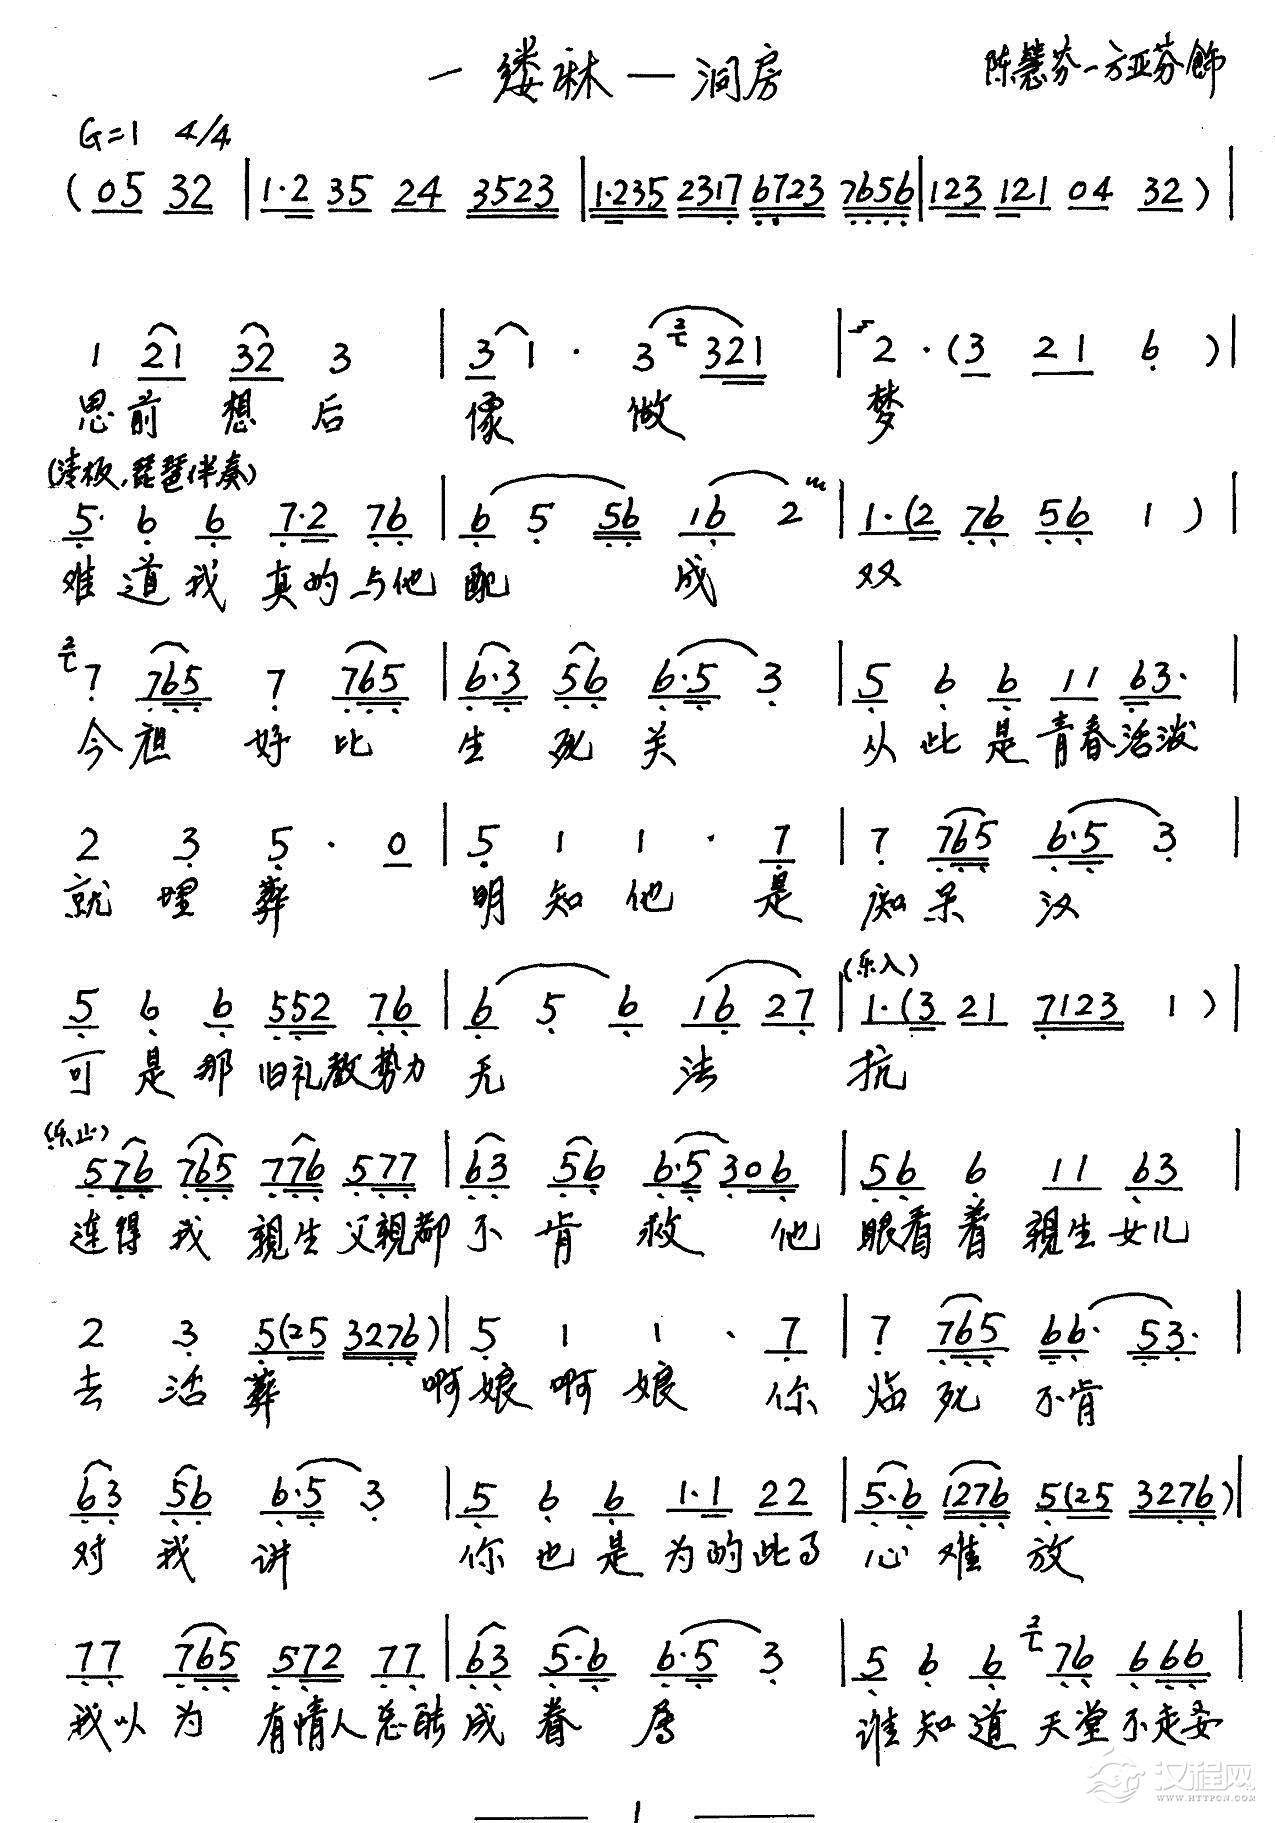 一缕麻—洞房
陈慧芬—方亚芬飾
G=1 4/4
(05 32 | 1·2 35 24 3523 | 1·235 2317 6723 7656 | 123 121 04 32 ) |
1 21 32 3 | 3 1 · 3 321 | 2 · (3 21 6 ) |
思前想后 像 做 梦
(清板.琵琶伴奏)
5· 6 6 7·2 76 | 6 5 56 16 2 | 1·(2 76 56 1 ) |
难道我真的与他配 成 双
7 765 7 765 | 6·3 56 6·5 3 | 5 6 6 11 63· |
今 好比生死关 从此是青春活泼
2 3 5 · 0 | 5 1 1 · 7 | 7 765 6·5 3 |
就埋葬 明知他是痴呆汉
(乐入)
5 6 6 552 76 | 6 5 6 16 27 | 1·(3 21 7123 1 ) |
可是那旧礼教势力无 法 抗
(乐止)
576 765 776 577 | 63 56 6·5 306 | 56 6 11 63 |
连得我親生父親都不肯救他眼看着親生女儿
2 3 5(25 3276) | 5 1 1 · 7 | 7 765 66· 53· |
去活葬 啊娘啊娘你临死不肯
63 56 6·5 3 | 5 6 6 1·1 22 | 5·6 1276 5(25 3276) |
对我讲 你也是为的此事心难放
77 765 572 77 | 63 5·6 6·5 3 | 5 6 6 76 666 |
我以为有情人总能成眷属 谁知道天堂不走要
1
汉程网
WWW.HTTPCN.COM